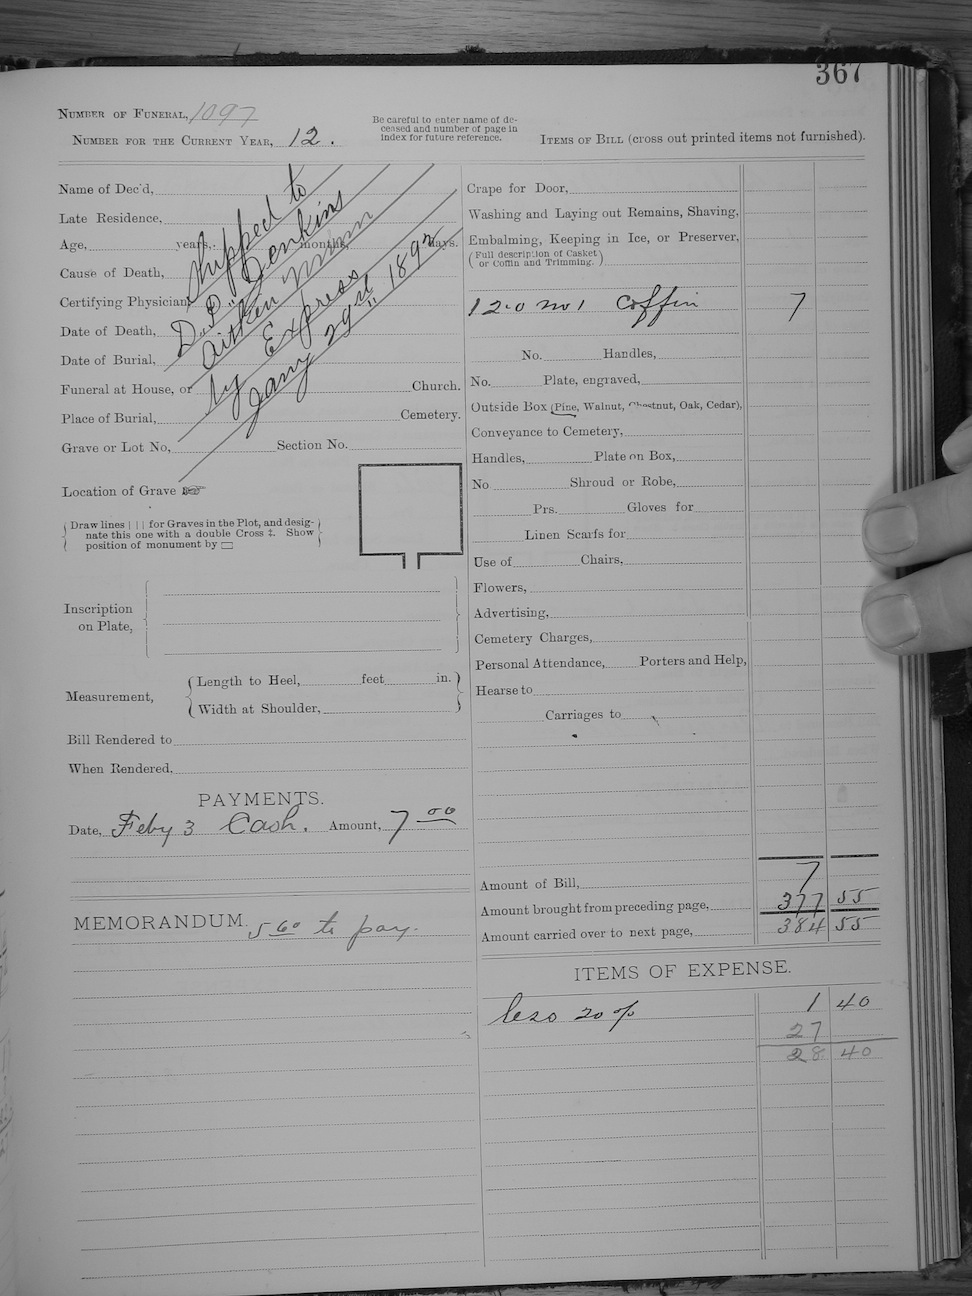 367
NUMBER OF FUNERAL, 1097
NUMBER FOR THE CURRENT YEAR, 12.
Be careful to enter name of de-
ceased and number of page in
index for future reference.
ITEMS OF BILL (cross out printed items not furnished).
Name of Dec'd,
Late Residence,
Age, years, months, days.
Cause of Death,
Certifying Physician,
Date of Death,
Date of Burial,
Funeral at House, or Church.
Place of Burial, Cemetery.
Grave or Lot No, Section No.
Shipped to
D. P. Jenkins
Aitken Minn
by Express
Jany 29th 1892
Location of Grave ☞
Draw lines | | | for Graves in the Plot, and desig-
nate this one with a double Cross ‡. Show
position of monument by ▭
Inscription
on Plate,
Measurement,
Length to Heel, feet in.
Width at Shoulder,
Bill Rendered to
When Rendered,
PAYMENTS.
Date, Feby 3 Cash. Amount, 7 00
MEMORANDUM. 5 60 to pay.
Crape for Door,
Washing and Laying out Remains, Shaving,
Embalming, Keeping in Ice, or Preserver,
(Full description of Casket
or Coffin and Trimming.)
12.0 no 1 Coffin 7
No. Handles,
No. Plate, engraved,
Outside Box (Pine, Walnut, Chestnut, Oak, Cedar),
Conveyance to Cemetery,
Handles, Plate on Box,
No. Shroud or Robe,
Prs. Gloves for
Linen Scarfs for
Use of Chairs,
Flowers,
Advertising,
Cemetery Charges,
Personal Attendance, Porters and Help,
Hearse to
Carriages to
Amount of Bill, 7
Amount brought from preceding page, 377 55
Amount carried over to next page, 384 55
ITEMS OF EXPENSE.
less 20% 1 40
27
28 40